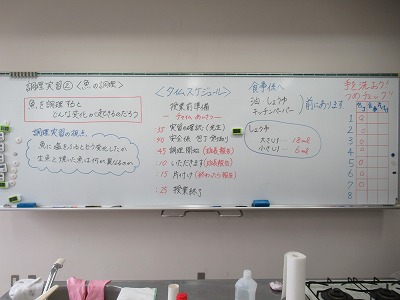 調理実習② 〈魚の調理〉
魚を調理すると
どんな変化が起きるのだろう
調理実習の視点
魚に塩をふるとどう変化したか
生魚と焼いた魚は何が異なるのか
〈タイムスケジュール〉
授業前準備
:35 実習の確認(先生)
:40 安全係 包丁受取り
:45 調理開始(班長報告)
:10 いただきます(班長報告)
:15 片付け(終わったら報告)
:25 授業終了
食事係へ
油 しょうゆ
キッチンペーパー
前にあります
しょうゆ
大さじ1 18ml
小さじ1 6ml
手を洗おう!
つめチェック!!
1
2
3
4
5
6
7
8